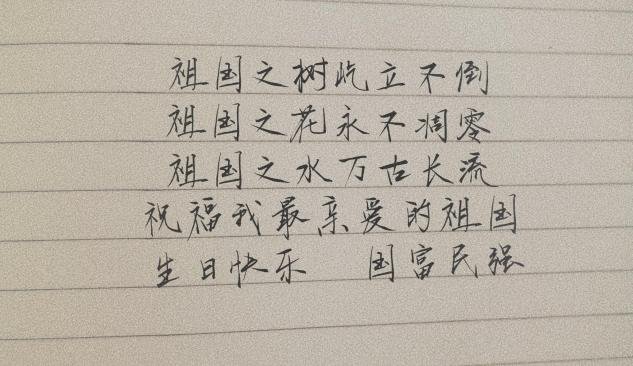 祖国之树屹立不倒
祖国之花永不凋零
祖国之水万古长流
祝福我最亲爱的祖国
生日快乐 国富民强